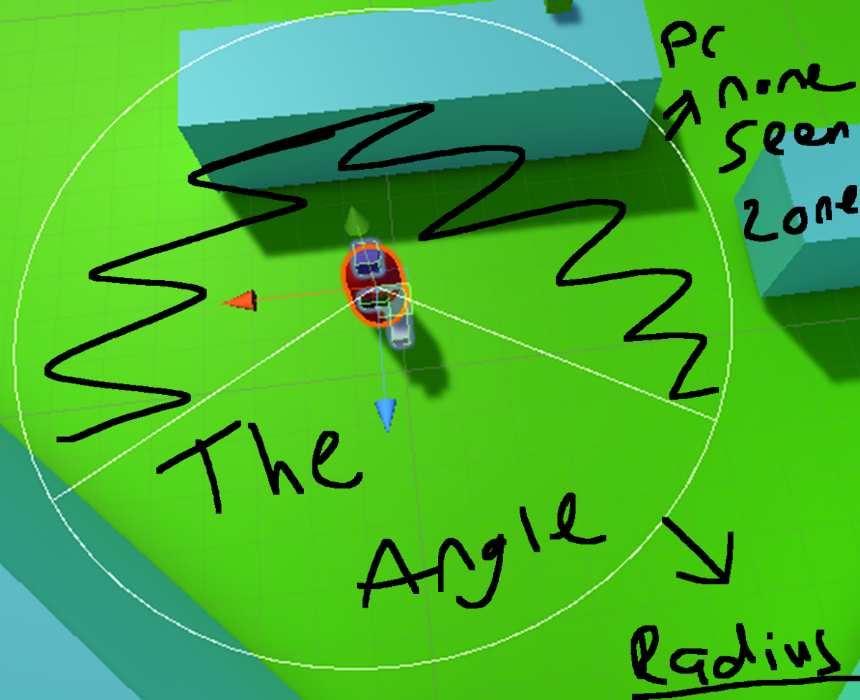 PC
none
Seen
Zone
The
Angle
Radius